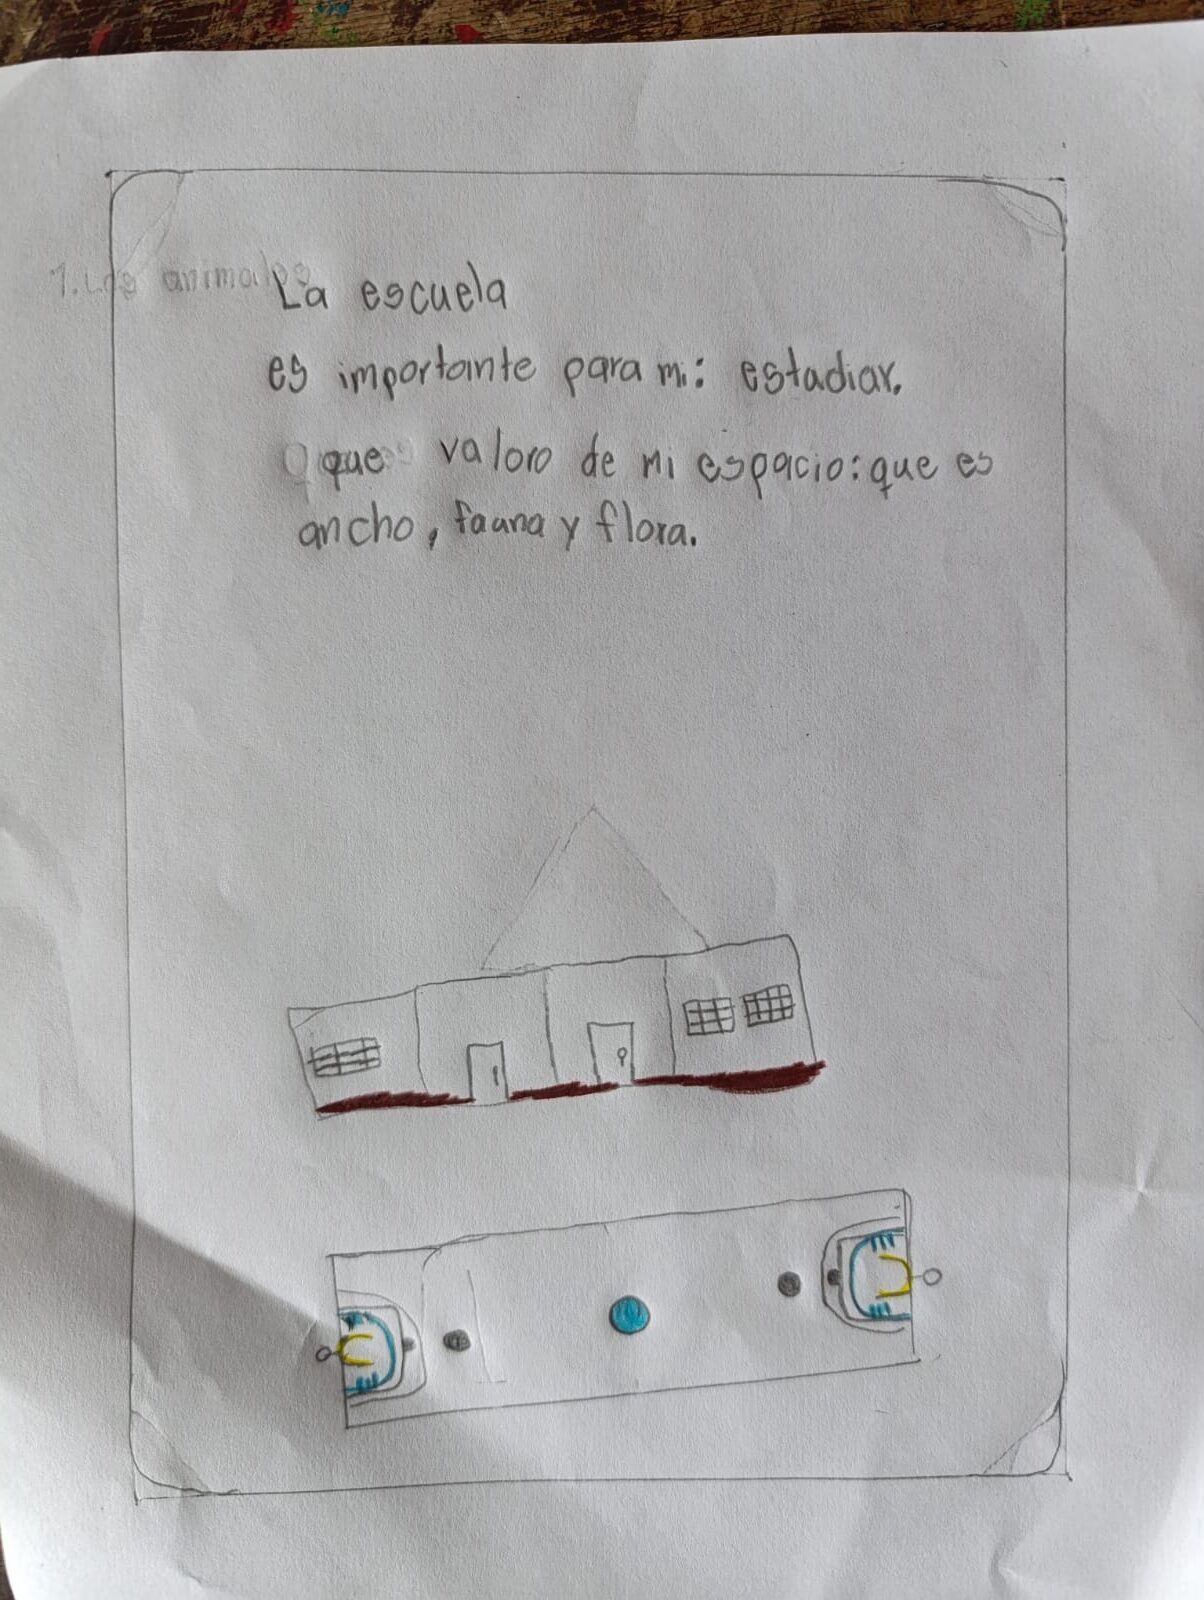 1. Los animales
La escuela
es importante para mi: estadiar.
que valoro de mi espacio: que es
ancho, fauna y flora.